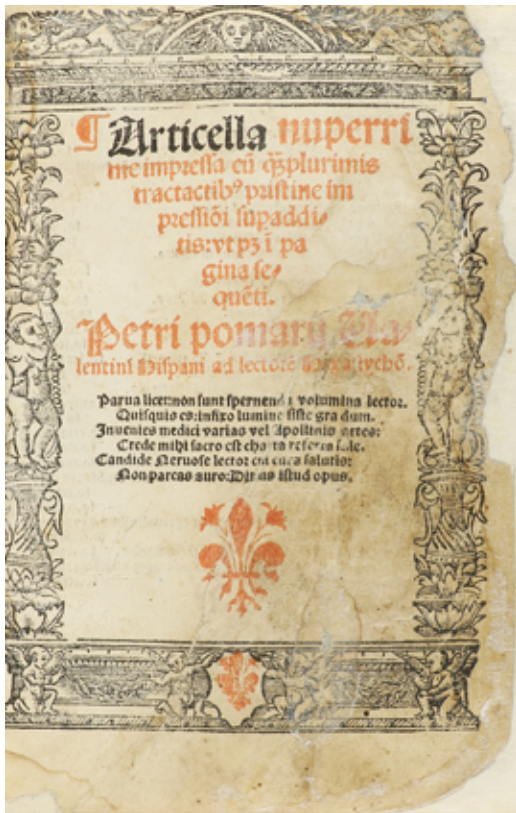 ¶ Articella nuperri
me impressa cū q̄ȝplurimis
tractactib⁹ pristine im
pressiōi supaddi⸗
tis:vt pȝ ī pa
gina se⸗
quēti.
Petri pomarij Ua⸗
lentini Hispani ad lectorē
Parua licet:non sunt spernenda volumina lector.
Quisquis es:infixo lumine siste gradum.
Inuenies medici varias vel Apollinis artes:
Crede mihi sacro est charta
Candide Neruose lector
Non parcas auro: istud opus.